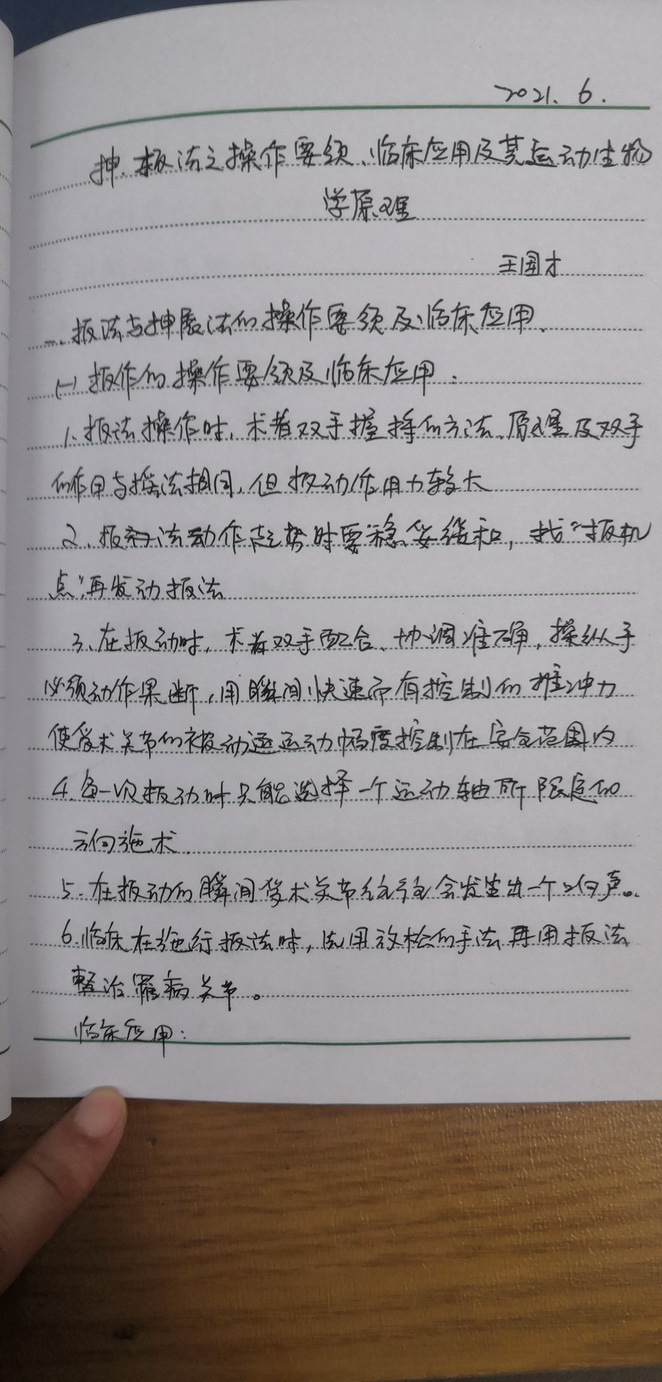 2021. 6.
抻、扳法之操作要领、临床应用及其运动生物
学原理
王国才
一、扳法与抻展法的操作要领及临床应用、
(一) 扳作的操作要领及临床应用：
1、扳法操作时，术者双手握拿的方法、原理及双手
的作用与摇法相同，但扳动作用力较大
2、扳法动作起势时要稳妥缓和，找“扳机
点”再发动扳法
3、在扳动时，术者双手配合、协调准确，操纵手
必须动作果断，用瞬间快速而有控制的推冲力
使受术关节的被动运动幅度控制在安全范围内
4、每一次扳动时只能选择一个运动轴所限定的
方向施术
5、在扳动的瞬间受术关节往往会发生出一个响声。
6、临床在施行扳法时，先用放松的手法再用扳法
整治罹病关节。
临床应用：